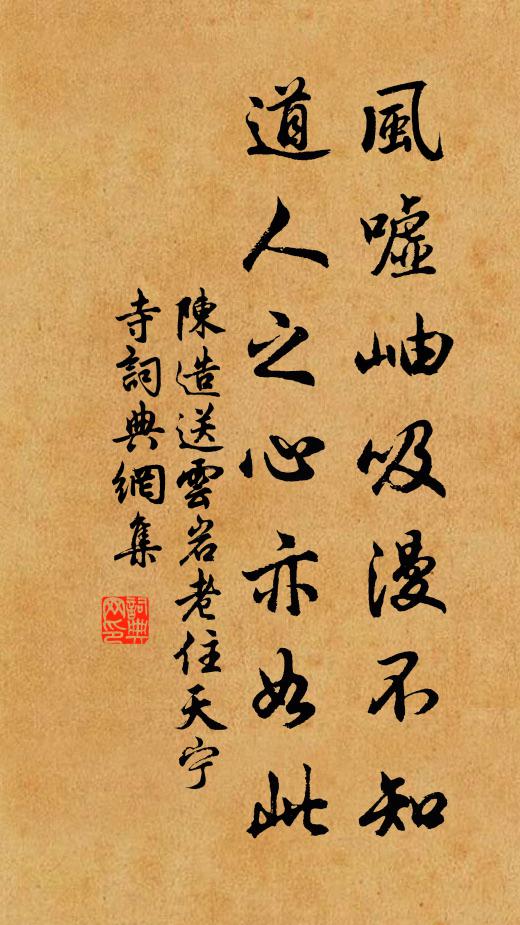 風嘘岫吸漫不知
道人之心亦如此
陳造送雲岩老住天宁
寺詞典網集
詞典
网印